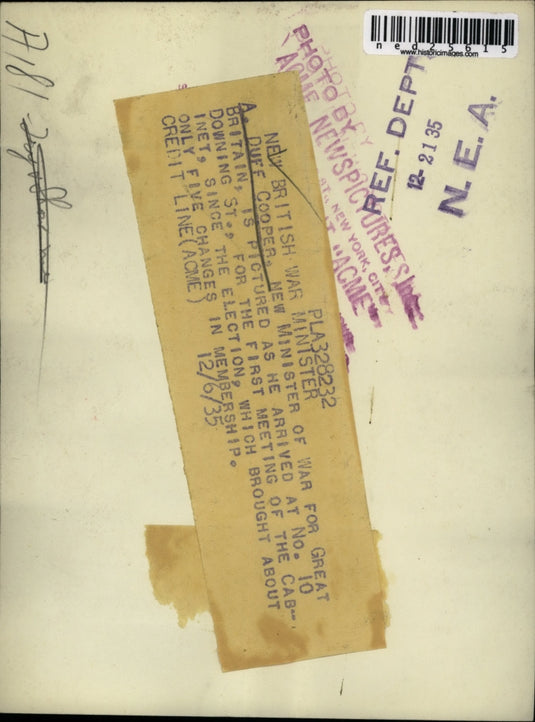 ned25615
www.historicimages.com
PHOTO BY
ACME NEWSPICTURES,
NEW YORK CITY
"ACME"
REF. DEPT.
12-21 35
N. E. A.
PLA328232
NEW BRITISH WAR MINISTER
A. DUFF COOPER, NEW MINISTER OF WAR FOR GREAT
BRITAIN, IS PICTURED AS HE ARRIVED AT NO. 10
DOWNING ST., FOR THE FIRST MEETING OF THE CAB-
INET, SINCE THE ELECTION, WHICH BROUGHT ABOUT
ONLY FIVE CHANGES IN MEMBERSHIP.
CREDIT LINE(ACME) 12/6/35